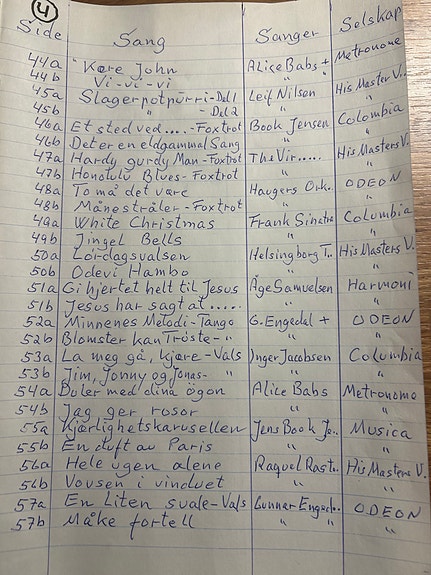 4
Side Sang Sanger Selskap
44a "Kære John Alice Babs + Metronome
44b Vi-vi-vi " "
45a Slagerpotpurri-Del 1 Leif Nilsen His Master V..
45b " - Del 2 " "
46a Et sted ved....-Foxtrot Book Jensen Colombia
46b Det er en eldgammel Sang " "
47a Hardy gurdy Man-Foxtrot The Vir..... His Masters V.
47b Honolulu Blues-Foxtrot " "
48a To må det være Haugers Ork. ODEON
48b Månestråler-Foxtrot " "
49a White Christmas Frank Sinatra Columbia
49b Jingel Bells " "
50a Lördagsvalsen Helsingborg T.. His Masters V.
50b Odevi Hambo " "
51a Gi hjertet helt til Jesus Åge Samuelsen Harmoni
51b Jesus har sagt at..... " "
52a Minnenes Melodi-Tango G. Engedal + ODEON
52b Blomster kan Tröste-" " "
53a La meg gå, kjære-Vals Inger Jacobsen Columbia
53b Jim, Jonny og Jonas- " " "
54a Duter med dina ögon Alice Babs Metronome
54b Jag ger rosor " "
55a Kjærlighetskarusellen Jens Book Je.. Musica
55b En duft av Paris " "
56a Hele ugen alene Raquel Rast.. His Masters V.
56b Vovsen i vinduet " "
57a En Liten svale-Vals Gunnar Enged.. ODEON
57b Måke fortell " " "